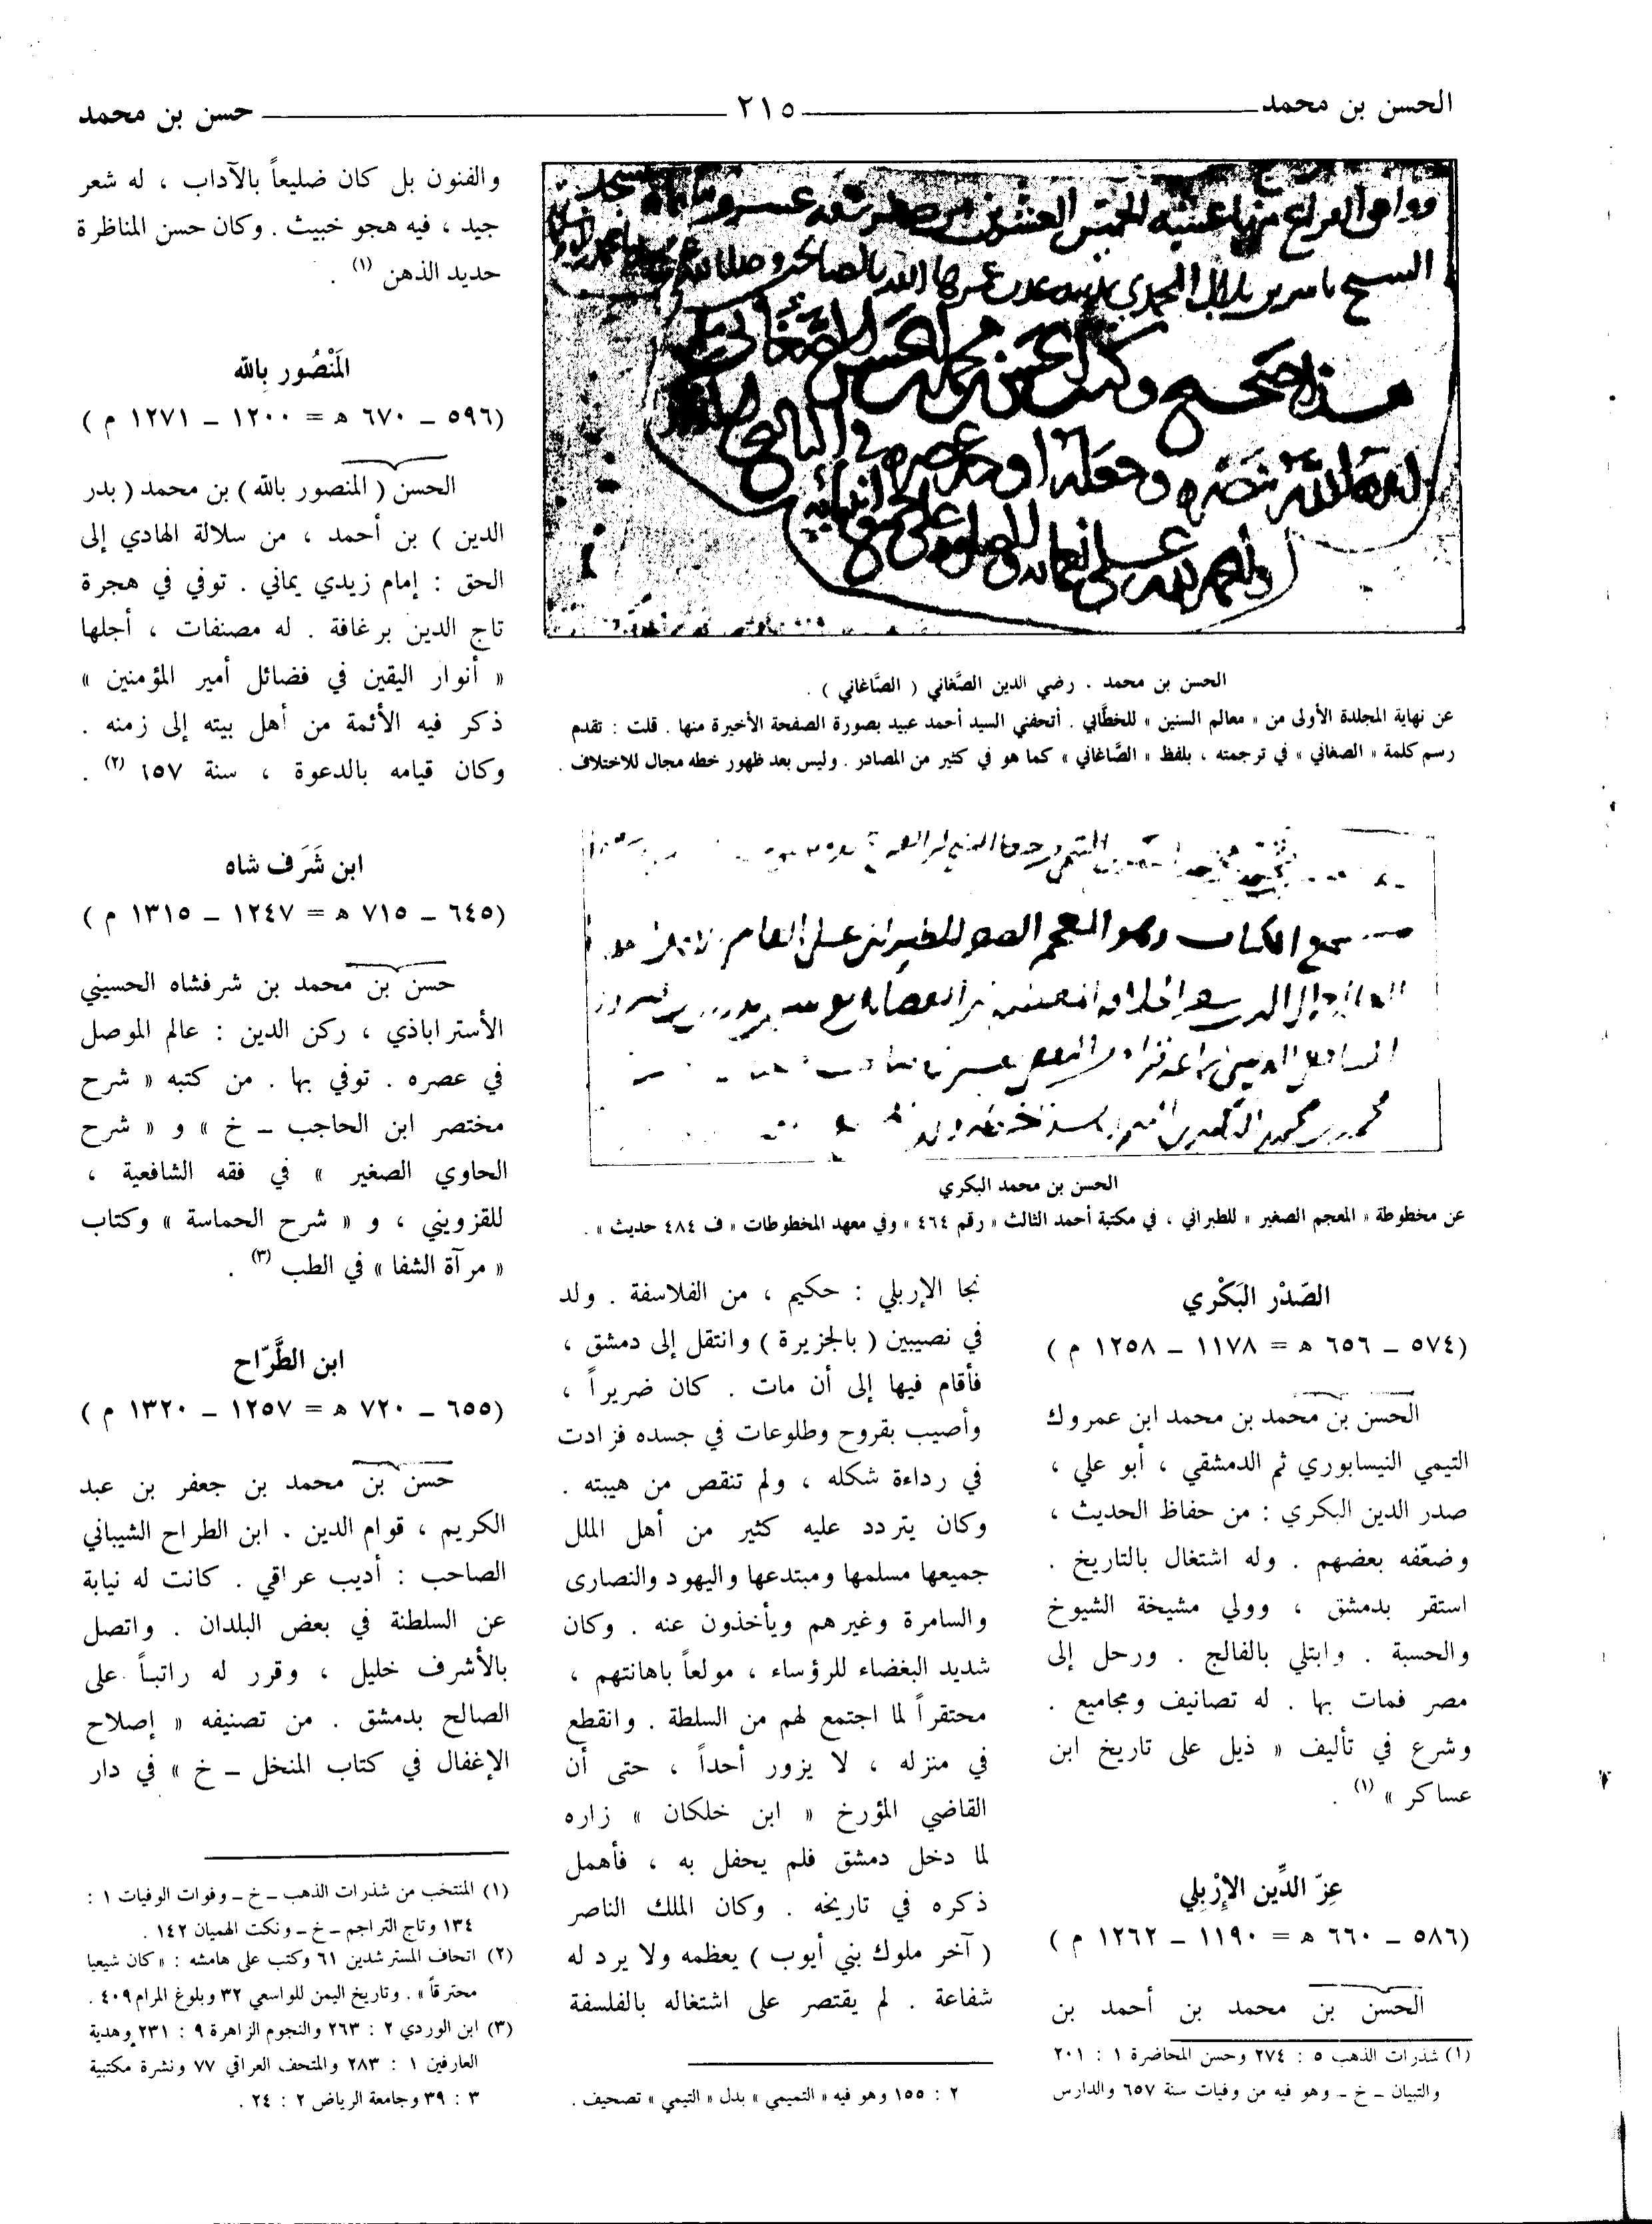 الحسن بن محمد ٢١٥ حسن بن محمد
هذا صحيح وكتب الحسن بن محمد بن الحسن الصغاني
الحسن بن محمد . رضي الدين الصَّغاني ( الصَّاغاني ) .
عن نهاية المجلدة الأولى من « معالم السنين » للخطَّابي . أتحفني السيد أحمد عبيد بصورة الصفحة الأخيرة منها . قلت : تقدم
رسم كلمة « الصغاني » في ترجمته ، بلفظ « الصَّاغاني » كما هو في كثير من المصادر . وليس بعد ظهور خطه مجال للاختلاف .
الحسن بن محمد البكري
عن مخطوطة « المعجم الصغير » للطبراني ، في مكتبة أحمد الثالث « رقم ٤٦٤ » وفي معهد المخطوطات « ف ٤٨٤ حديث » .
الصّدْر البَكْري
(٥٧٤ – ٦٥٦ ه = ١١٧٨ – ١٢٥٨ م )
الحسن بن محمد بن محمد ابن عمروك
التيمي النيسابوري ثم الدمشقي ، أبو علي ،
صدر الدين البكري : من حفاظ الحديث ،
وضعّفه بعضهم . وله اشتغال بالتاريخ .
استقر بدمشق ، وولي مشيخة الشيوخ
والحسبة . وابتلي بالفالج . ورحل إلى
مصر فمات بها . له تصانيف ومجاميع .
وشرع في تأليف « ذيل على تاريخ ابن
عساكر » (١) .
عِزّ الدِّين الإِرْبِلي
(٥٨٦ – ٦٦٠ ه = ١١٩٠ – ١٢٦٢ م )
الحسن بن محمد بن أحمد بن
(١) شذرات الذهب ٥ : ٢٧٤ وحسن المحاضرة ١ : ٢٠١
والتبيان – خ – وهو فيه من وفيات سنة ٦٥٧ والدارس
نجا الإربلي : حكيم ، من الفلاسفة . ولد
في نصيبين ( بالجزيرة ) وانتقل إلى دمشق ،
فأقام فيها إلى أن مات . كان ضريراً ،
وأصيب بقروح وطلوعات في جسده فزادت
في رداءة شكله ، ولم تنقص من هيبته .
وكان يتردد عليه كثير من أهل الملل
جميعها مسلمها ومبتدعها واليهود والنصارى
والسامرة وغيرهم ويأخذون عنه . وكان
شديد البغضاء للرؤساء ، مولعاً باهانتهم ،
محتقراً لما اجتمع لهم من السلطة . وانقطع
في منزله ، لا يزور أحداً ، حتى أن
القاضي المؤرخ « ابن خلكان » زاره
لما دخل دمشق فلم يحفل به ، فأهمل
ذكره في تاريخه . وكان الملك الناصر
( آخر ملوك بني أيوب ) يعظمه ولا يرد له
شفاعة . لم يقتصر على اشتغاله بالفلسفة
٢ : ١٥٥ وهو فيه « التميمي » بدل « التيمي » تصحيف .
والفنون بل كان ضليعاً بالآداب ، له شعر
جيد ، فيه هجو خبيث . وكان حسن المناظرة
حديد الذهن (١) .
المَنْصُور بِالله
(٥٩٦ – ٦٧٠ ه = ١٢٠٠ – ١٢٧١ م )
الحسن ( المنصور بالله ) بن محمد ( بدر
الدين ) بن أحمد ، من سلالة الهادي إلى
الحق : إمام زيدي يماني . توفي في هجرة
تاج الدين برغافة . له مصنفات ، أجلها
« أنوار اليقين في فضائل أمير المؤمنين »
ذكر فيه الأئمة من أهل بيته إلى زمنه .
وكان قيامه بالدعوة ، سنة ٦٥٧ (٢) .
ابن شَرَف شاه
(٦٤٥ – ٧١٥ ه = ١٢٤٧ – ١٣١٥ م )
حسن بن محمد بن شرفشاه الحسيني
الأستراباذي ، ركن الدين : عالم الموصل
في عصره . توفي بها . من كتبه « شرح
مختصر ابن الحاجب – خ » و « شرح
الحاوي الصغير » في فقه الشافعية ،
للقزويني ، و « شرح الحماسة » وكتاب
« مرآة الشفا » في الطب (٣) .
ابن الطَّرّاح
(٦٥٥ – ٧٢٠ ه = ١٢٥٧ – ١٣٢٠ م )
حسن بن محمد بن جعفر بن عبد
الكريم ، قوام الدين . ابن الطراح الشيباني
الصاحب : أديب عراقي . كانت له نيابة
عن السلطنة في بعض البلدان . واتصل
بالأشرف خليل ، وقرر له راتباً على
الصالح بدمشق . من تصنيفه « إصلاح
الإغفال في كتاب المنخل – خ » في دار
(١) المنتخب من شذرات الذهب – خ – وفوات الوفيات ١ :
١٣٤ وتاج التراجم – خ – ونكت الهميان ١٤٢ .
(٢) اتحاف المسترشدين ٦١ وكتب على هامشه : « كان شيعيا
محترقاً » . وتاريخ اليمن للواسعي ٣٢ وبلوغ المرام ٤٠٩ .
(٣) ابن الوردي ٢ : ٢٦٣ والنجوم الزاهرة ٩ : ٢٣١ وهدية
العارفين ١ : ٢٨٣ والمتحف العراقي ٧٧ ونشرة مكتبية
٣ : ٣٩ وجامعة الرياض ٢ : ٢٤ .